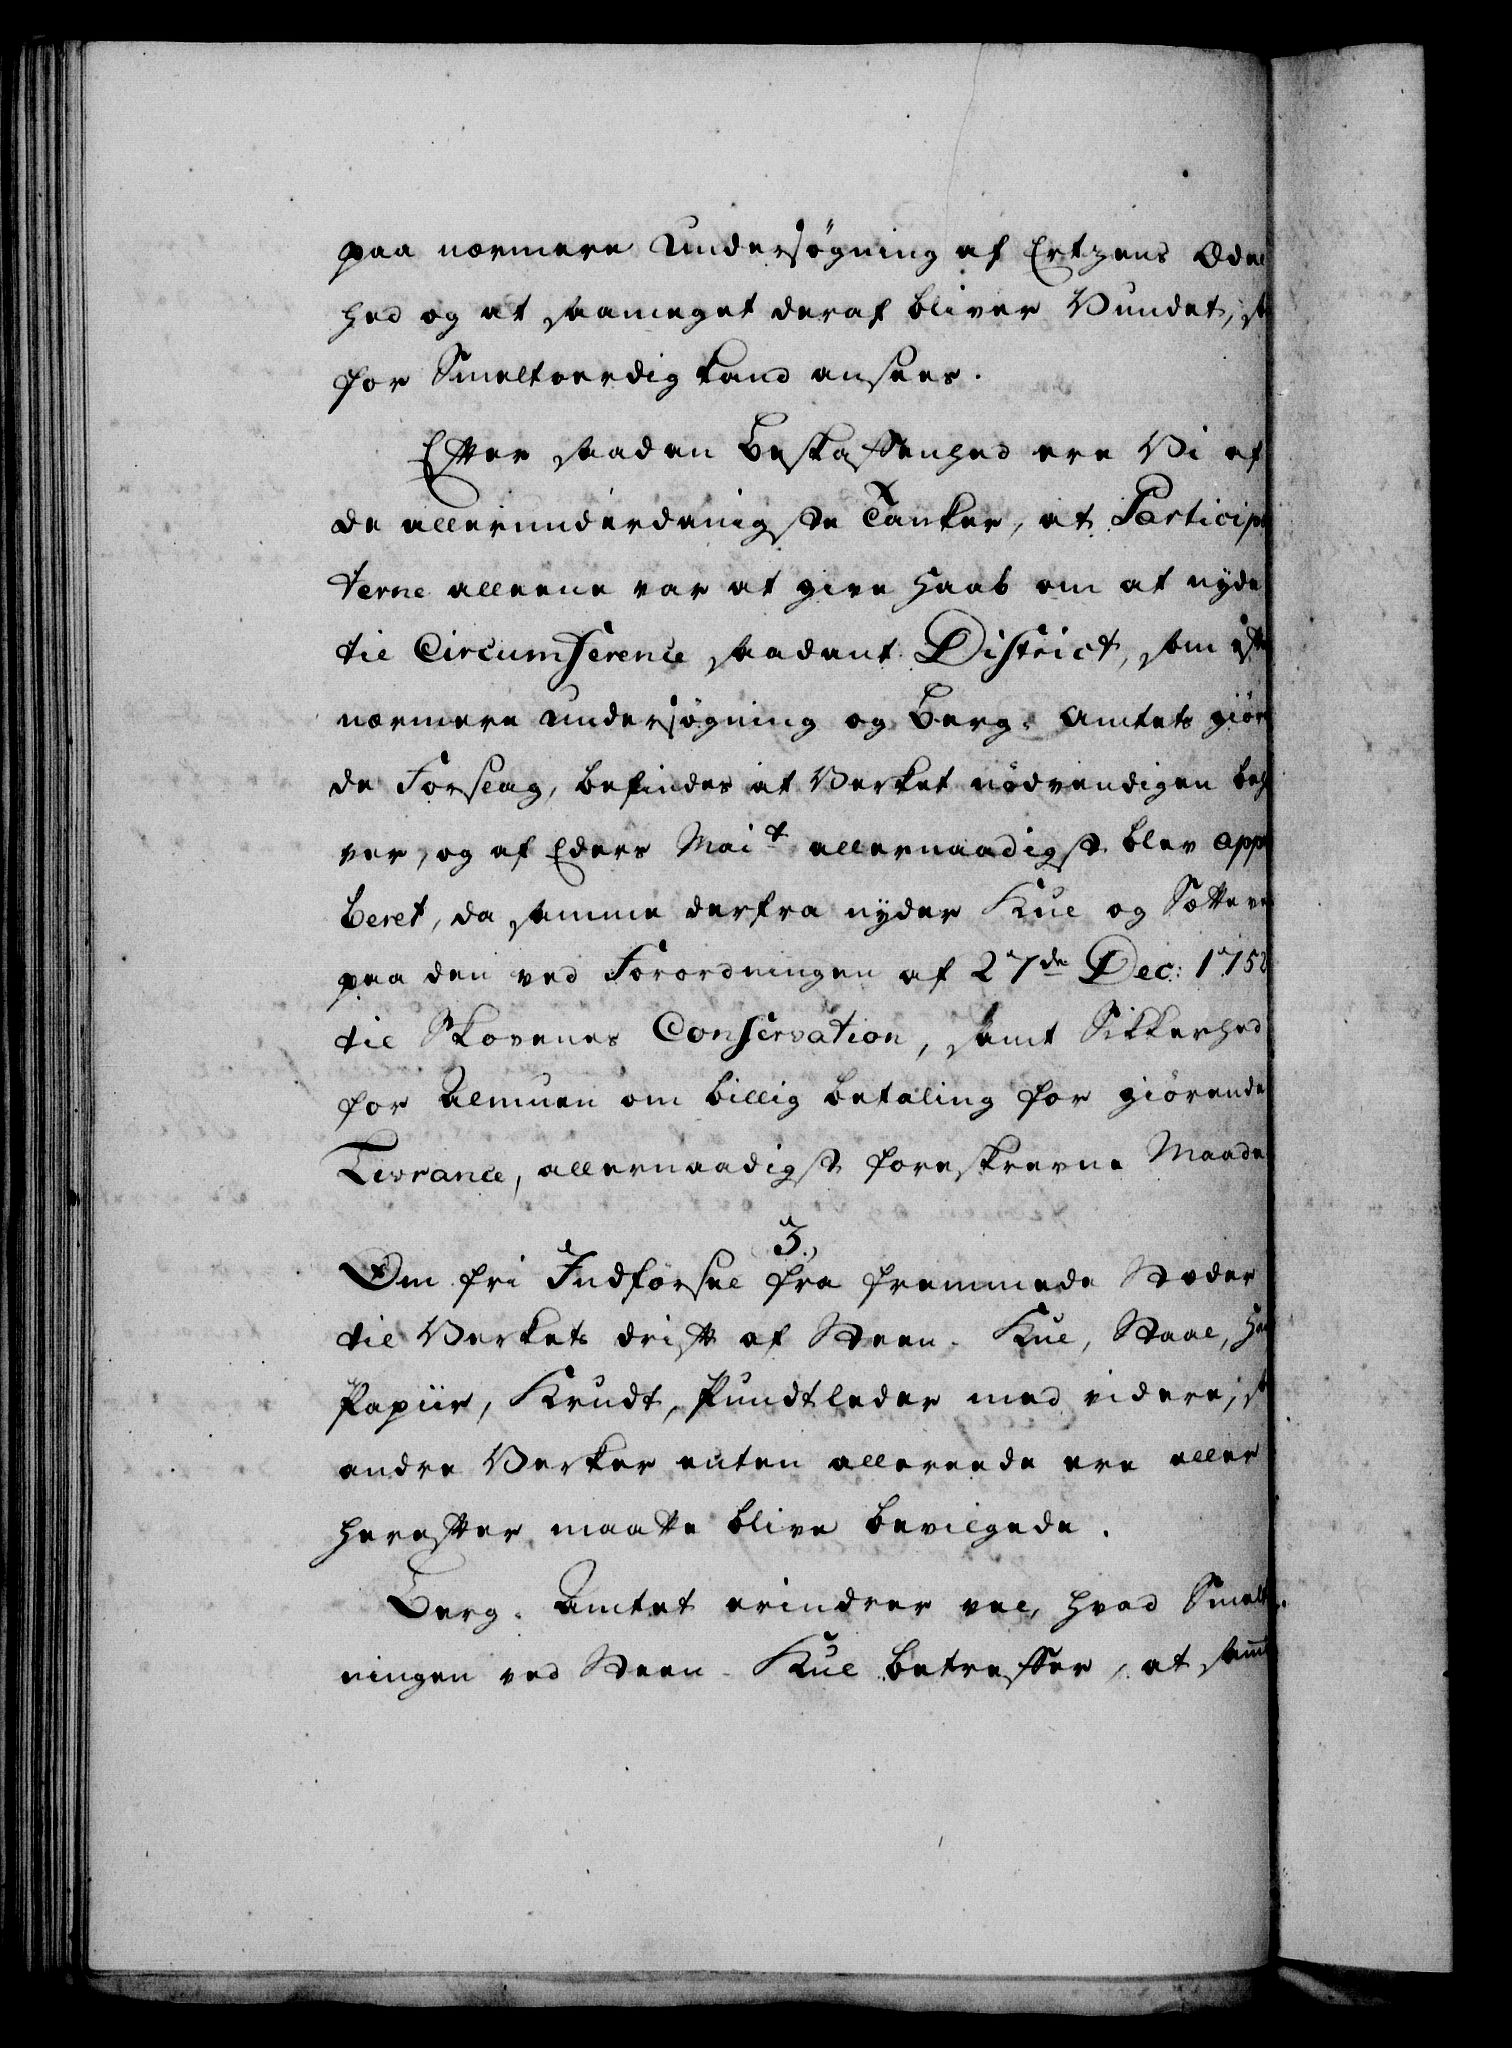 paa nærmere Undersøgning af Ertzens Ædel
hed og at saameget deraf bliver Vundet,
for Smeltverdig kand ansees.
Efter saadan Beskaffenhed ere Vi af
de allerunderdanigste Tanker, at Particip
terne alleene var at give Haab om at nyde
til Circumference saadant District, som
nærmere Undersøgning og Berg-Amtets giør
de Forslag, befindes at Verket nødvendigen beh
ver, og af Eders Mait allernaadigst blev app
beret, da samme derfra nyder Kul og Sætteve
paa den ved Forordningen af 27de Dec: 1752
til Skovenes Conservation, samt Sikkerhed
for Almuen om billig betaling for giørende
Levrance, allernaadigst foreskrevne Maade
3.,
Om fri Indførsel fra fremmede Stæder
til Verkets drift af Steen-Kul, Staal,
Papiir, Krudt, Pundtleder med videre,
andre Verker enten allereede ere eller
herefter maatte blive bevilgede.
Berg-Amtet erindrer vel, hvad Smelt
ningen ved Steen-Kul betreffer, at sam